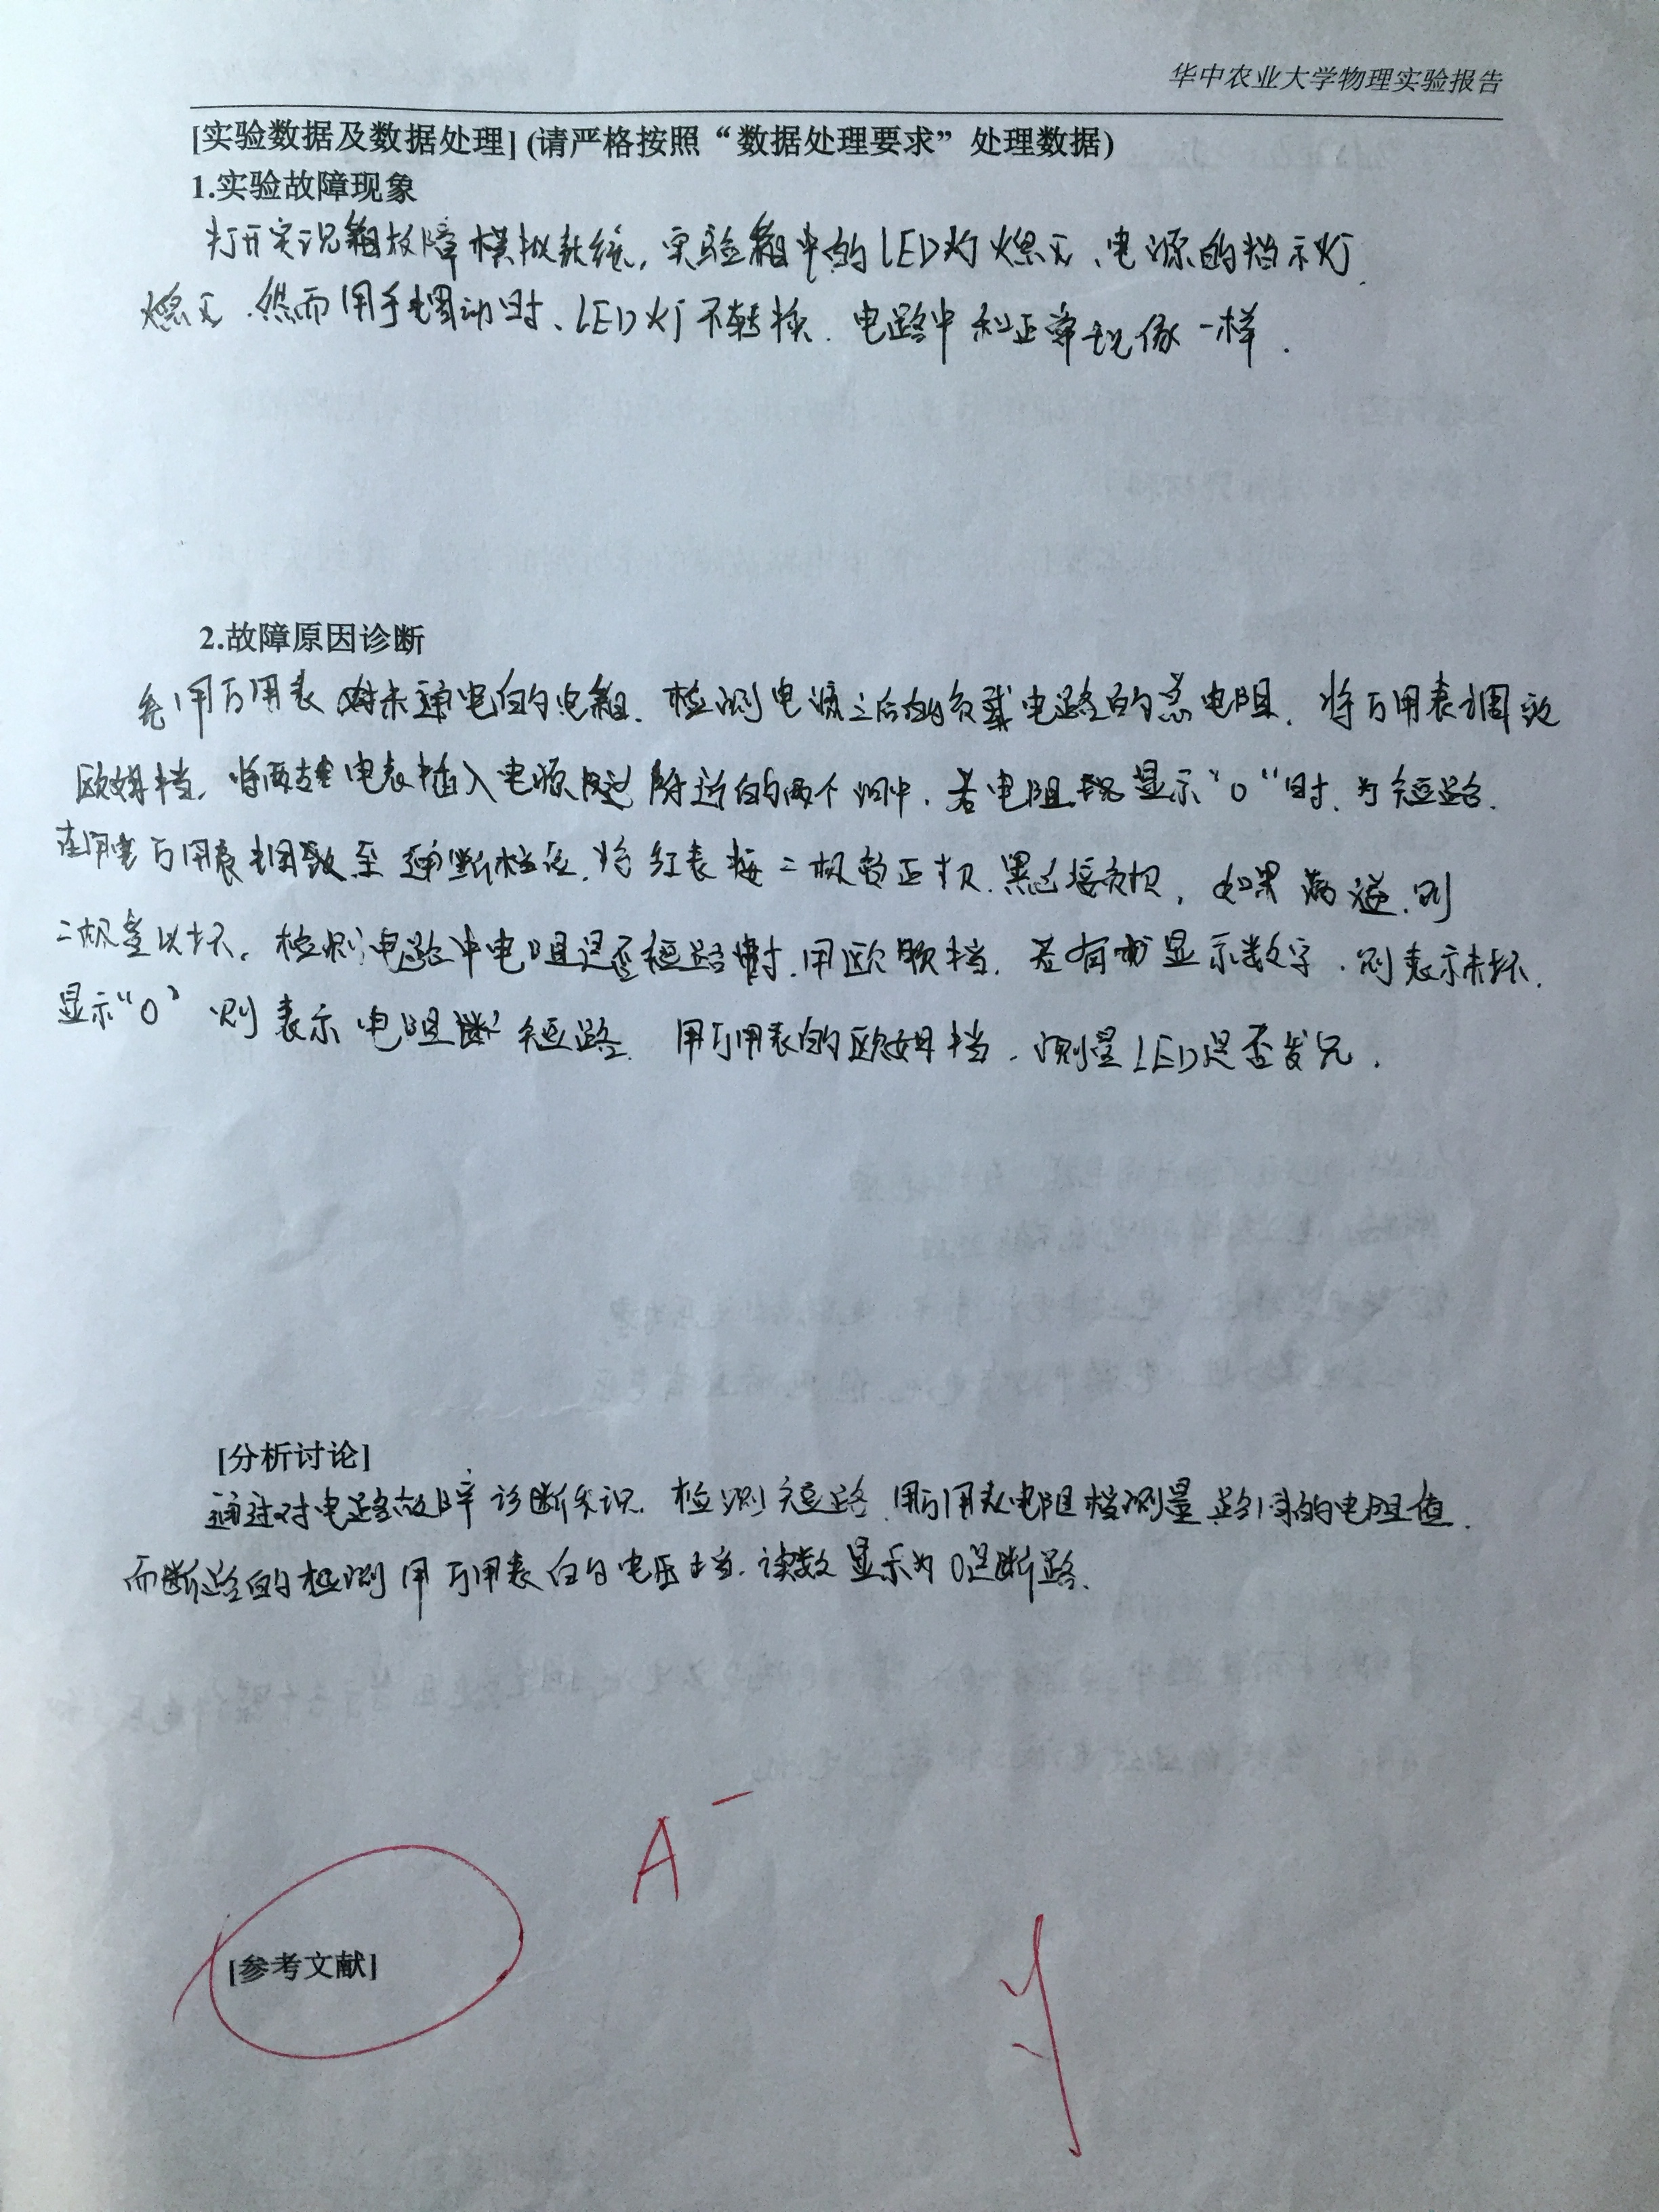 华中农业大学物理实验报告
[实验数据及数据处理] (请严格按照“数据处理要求”处理数据)
1.实验故障现象
打开实况箱故障模拟系统，实验箱中的LED灯熄灭、电源的指示灯
熄灭.然而用手调动时、LED灯不转换.电路中和正常现像一样.
2.故障原因诊断
先用万用表对未通电的电箱.检测电源之后的负载电路的总电阻.将万用表调到
欧姆档.将两支电表插入电源附近的两个洞中.若电阻显示“0”时.为短路.
万用表调至通断档位.将红表接二极管正极.黑表接负极,如果
二极管以坏.检测电路中电阻是否短路时.用欧姆档.若有显示数字.则表示未坏.
显示“0”则表示电阻短路.用万用表的欧姆档.测量LED是否发光.
[分析讨论]
通过对电路故障诊断知识.检测短路.用万用表电阻档测量的电阻值.
而断路的检测用万用表的电压档.读数显示为0是断路.
A-
[参考文献]